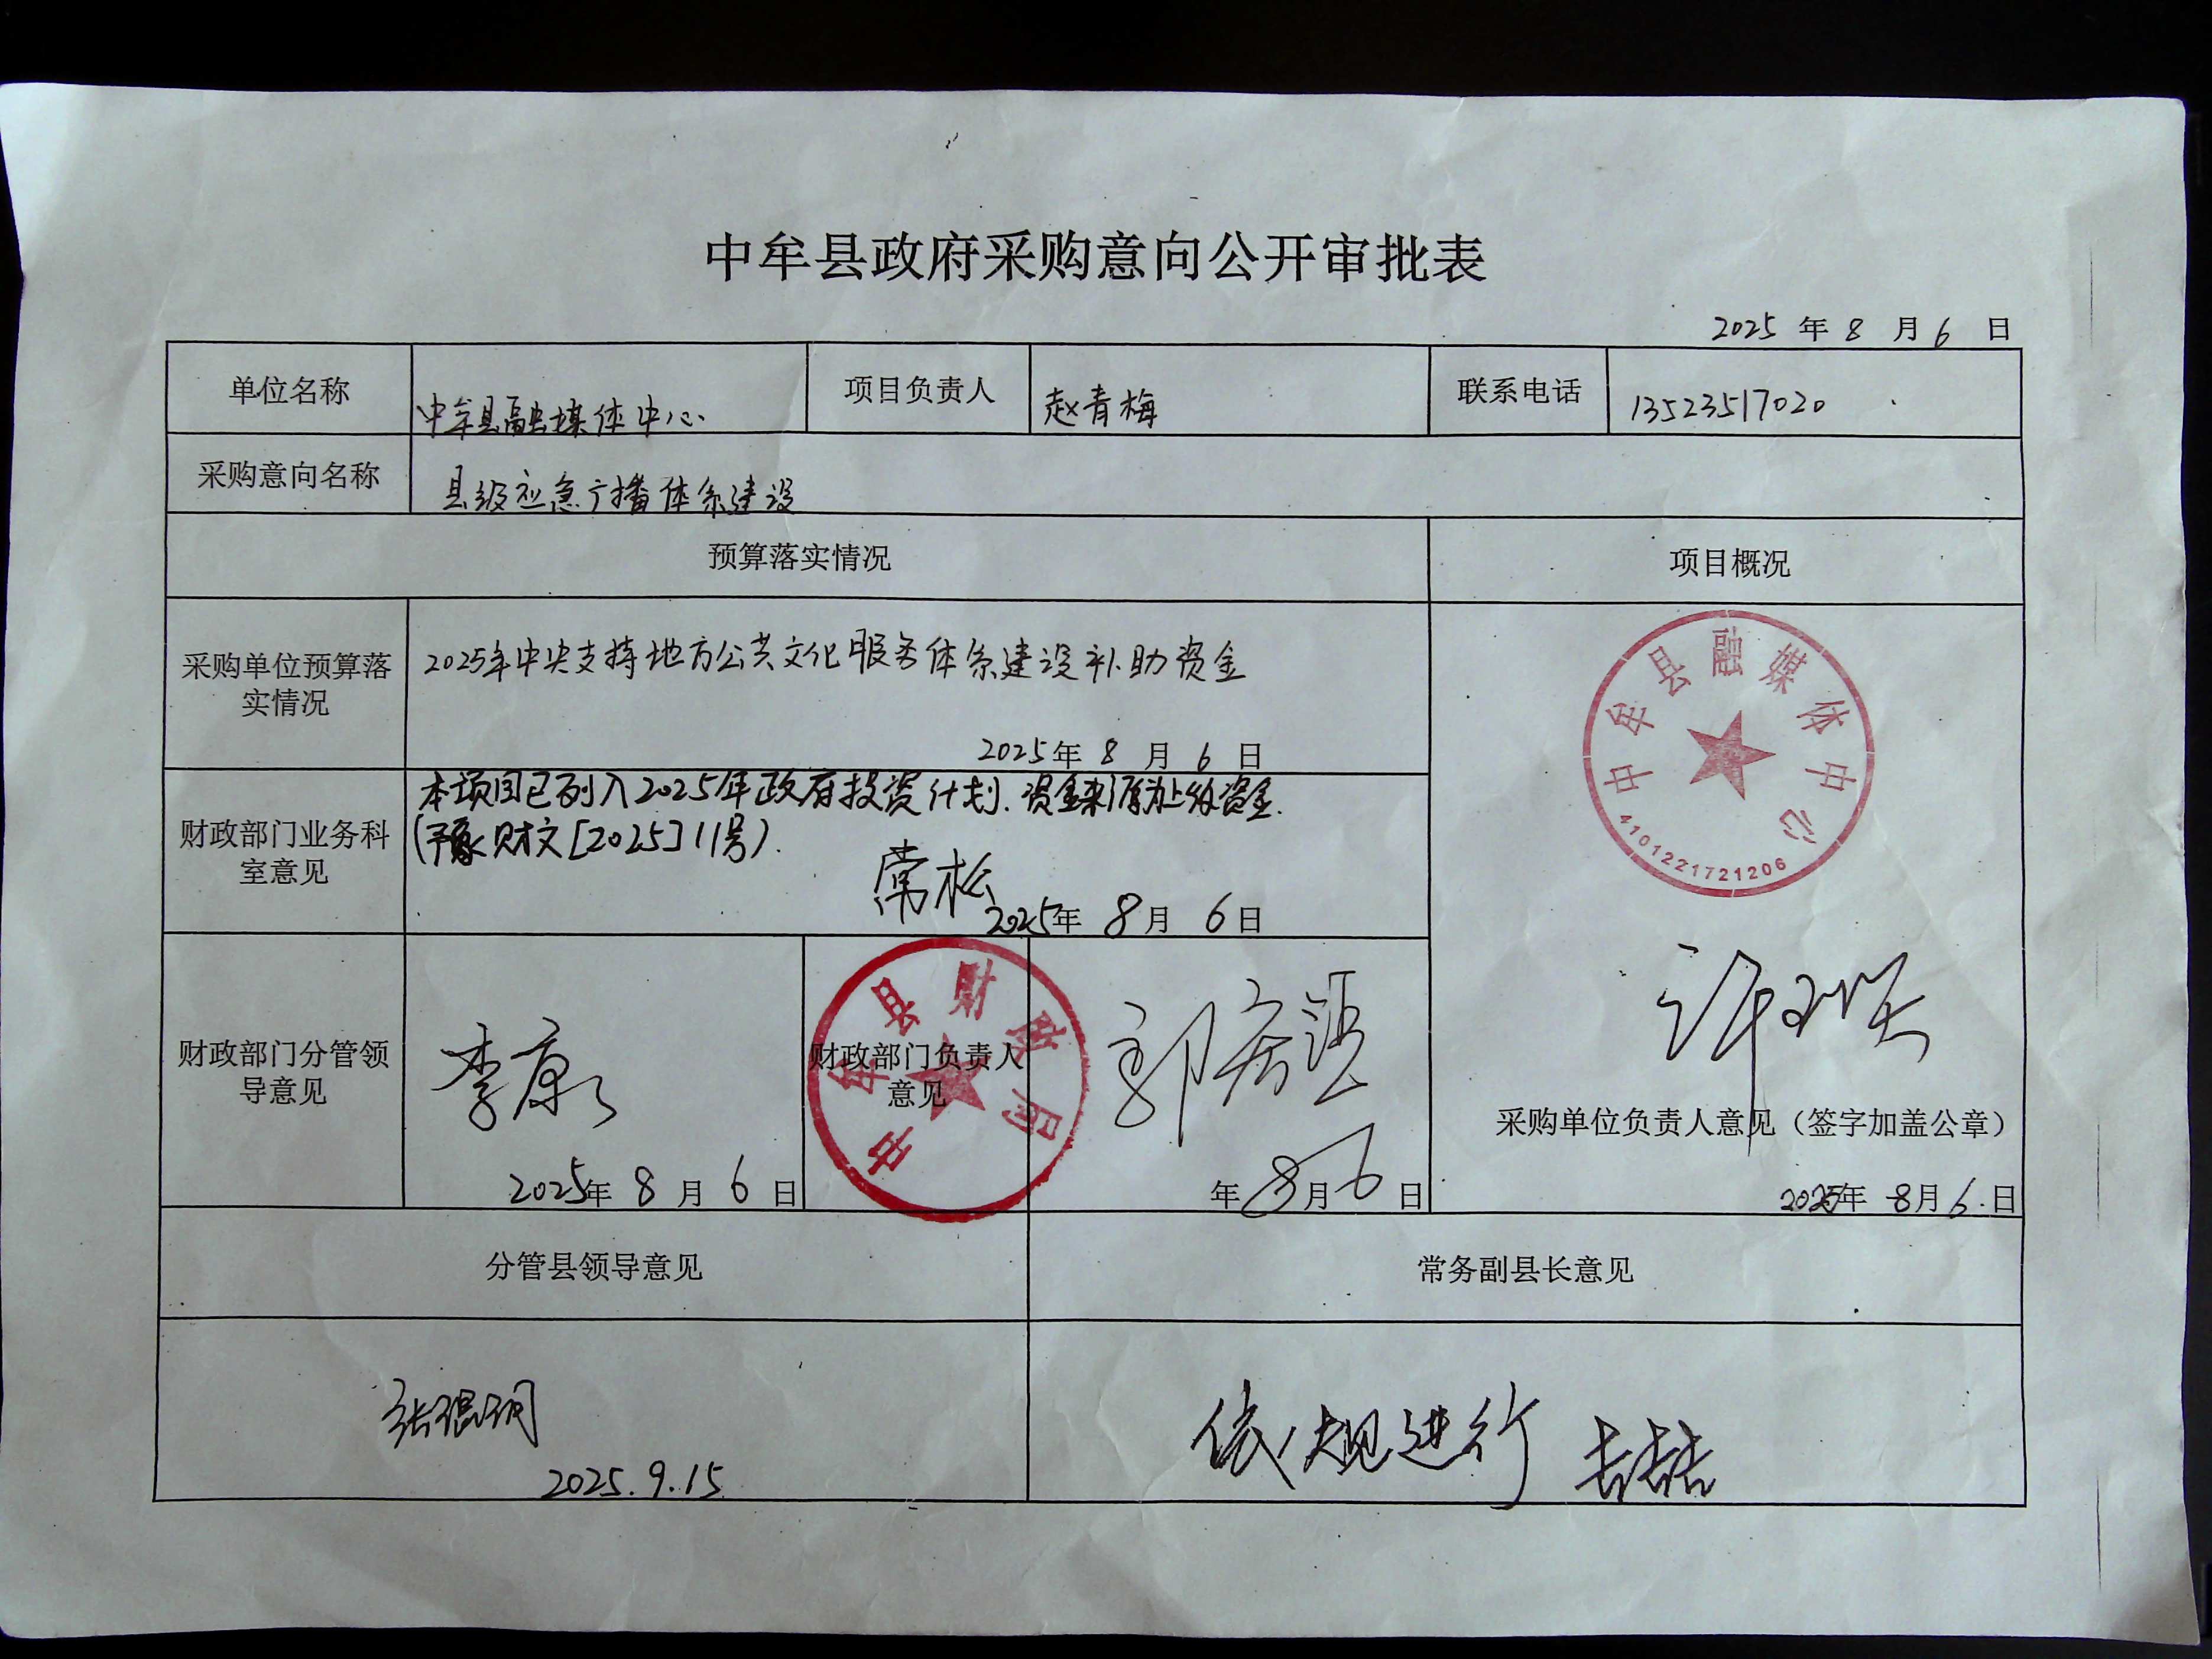 中牟县政府采购意向公开审批表
2025 年 8 月 6 日
单位名称
中牟县融媒体中心
项目负责人
赵青梅
联系电话
13523517020
采购意向名称
县级应急广播体系建设
预算落实情况
项目概况
采购单位预算落
实情况
2025年中央支持地方公共文化服务体系建设补助资金
2025年 8 月 6 日
财政部门业务科
室意见
本项目已列入2025年政府投资计划.资金来源为上级资金.
(豫财文[2025]11号).
常松
2025年 8月 6日
中牟县融媒体中心
4101221721206
采购单位负责人意见（签字加盖公章）
2025年 8月6日
财政部门分管领
导意见
李康
2025年 8 月 6 日
财政部门负责人
意见
中牟县财政局
年 8月6日
分管县领导意见
常务副县长意见
2025.9.15
依规进行